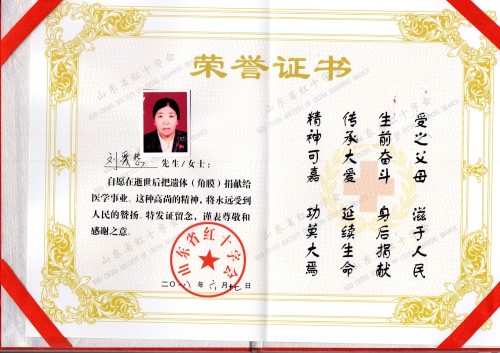 荣誉证书
刘爱 先生/女士：
自愿在逝世后把遗体（角膜）捐献给
医学事业。这种高尚的精神，将永远受到
人民的赞扬。特发证留念，谨表尊敬和
感谢之意。
山东省红十字会
二〇一八年六月十七日
受之父母 滋于人民
生前奋斗 身后捐献
传承大爱 延续生命
精神可嘉 功莫大焉
山东省红十字会
RED CROSS SOCIETY OF CHINA SHANDONG BRANCH